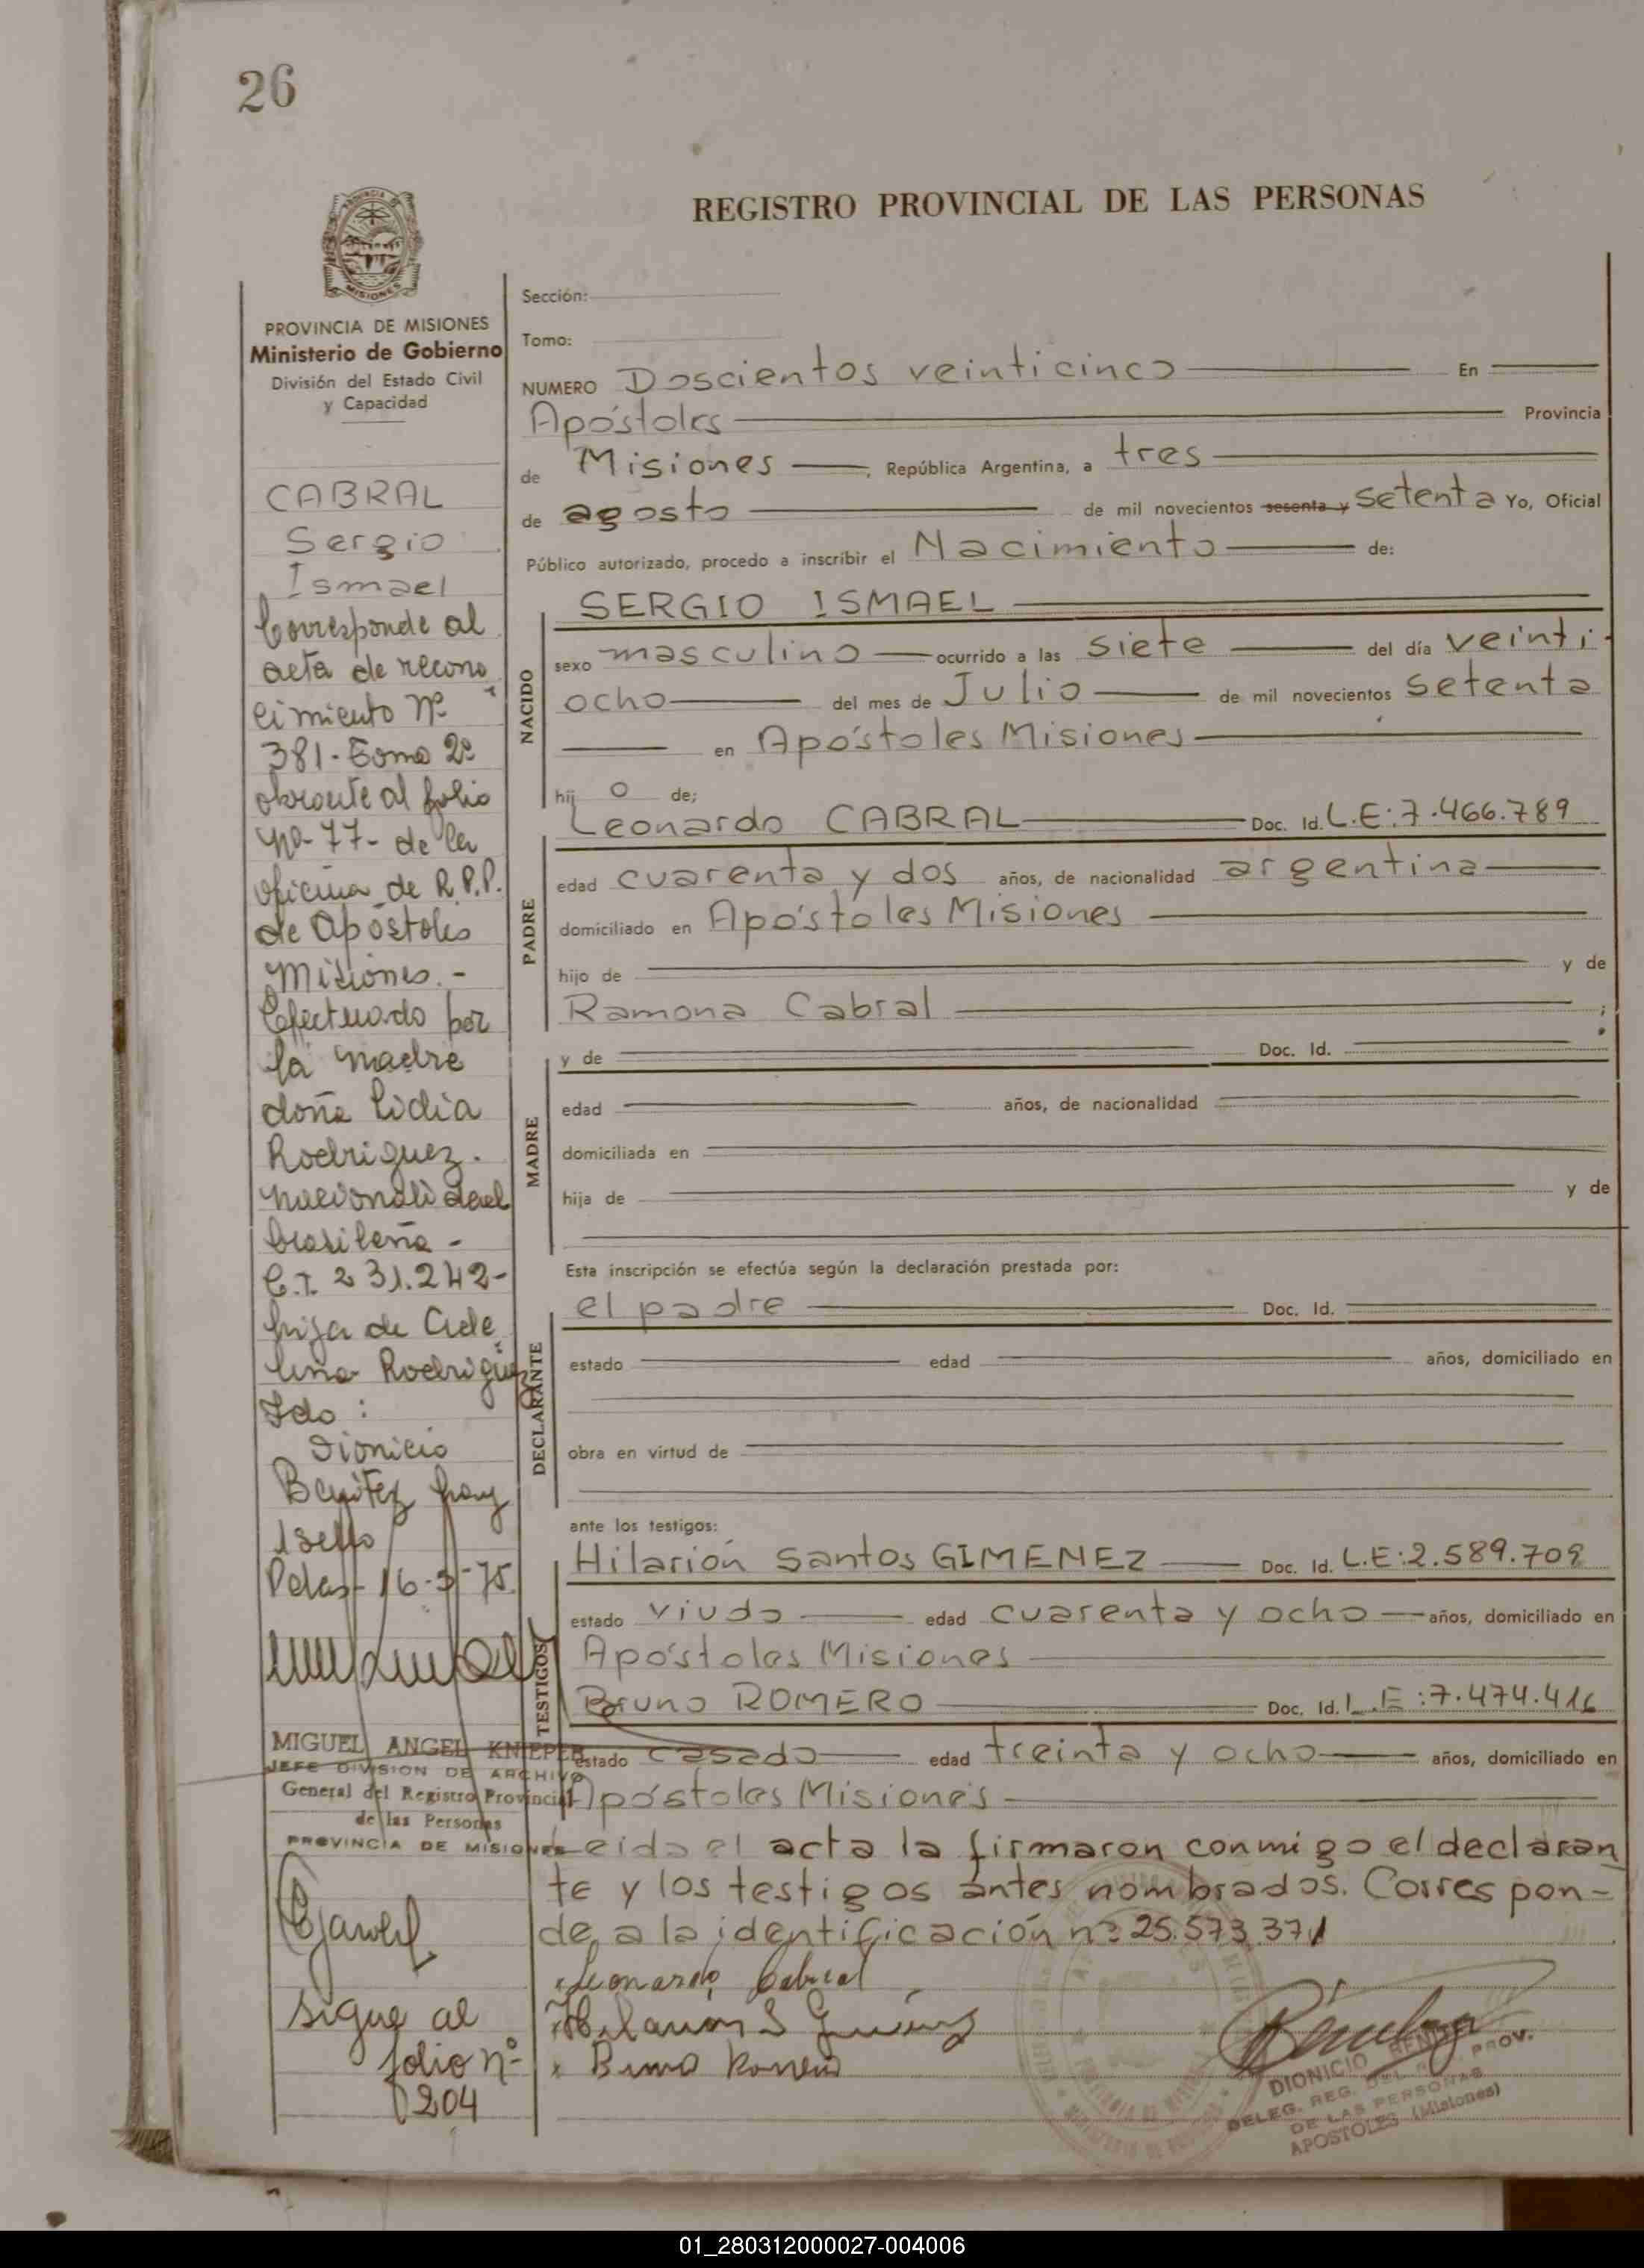 26
REGISTRO PROVINCIAL DE LAS PERSONAS
MISIONES
PROVINCIA DE MISIONES
Ministerio de Gobierno
División del Estado Civil
y Capacidad
CABRAL
Sergio
Ismael
Corresponde al
acta de recono
cimiento Nº
381-Tomo 2º
obrante al folio
Nº-77- de la
oficina de R.P.P.
de Apóstoles
Misiones.-
Efectuado por
la madre
doña Lidia
Rodriguez.
nacionalidad
brasileña-
C.I. 231.242-
hija de Ade
lina Rodriguez
Fdo:
Dionicio
Benitez hay
1 sello
Pdas- 16-9-75.
MIGUEL ANGEL KNIEPER
JEFE DIVISION DE ARCHIVO
General del Registro Provincial
de las Personas
PROVINCIA DE MISIONES
sigue al
folio nº
204
Sección:
Tomo:
NUMERO Doscientos veinticinco En
Apóstoles Provincia
de Misiones, República Argentina, a tres
de agosto de mil novecientos sesenta y setenta Yo, Oficial
Público autorizado, procedo a inscribir el Nacimiento de:
NACIDO
SERGIO ISMAEL
sexo masculino ocurrido a las siete del día veinti-
ocho del mes de Julio de mil novecientos setenta
en Apóstoles Misiones
hij o de;
PADRE
Leonardo CABRAL Doc. Id. L.E:7.466.789
edad cuarenta y dos años, de nacionalidad argentina
domiciliado en Apóstoles Misiones
hijo de y de
Ramona Cabral ;
MADRE
y de Doc. Id.
edad años, de nacionalidad
domiciliada en
hija de y de
Esta inscripción se efectúa según la declaración prestada por:
DECLARANTE
el padre Doc. Id.
estado edad años, domiciliado en
obra en virtud de
ante los testigos:
TESTIGOS
Hilarión Santos GIMENEZ Doc. Id. L.E:2.589.709
estado viudo edad cuarenta y ocho años, domiciliado en
Apóstoles Misiones
Bruno ROMERO Doc. Id. L.E:7.474.416
estado casado edad treinta y ocho años, domiciliado en
Apóstoles Misiones
Leida el acta la firmaron conmigo el declaran
te y los testigos antes nombrados. Corres pon-
de a la identificación nº 25.573.371
Leonardo Cabral
Hilarión S Gimenez
Bruno Romero
DIONICIO BENITEZ
DELEG. REG. DEL REG. PROV.
DE LAS PERSONAS
APOSTOLES (Misiones)
01_280312000027-004006